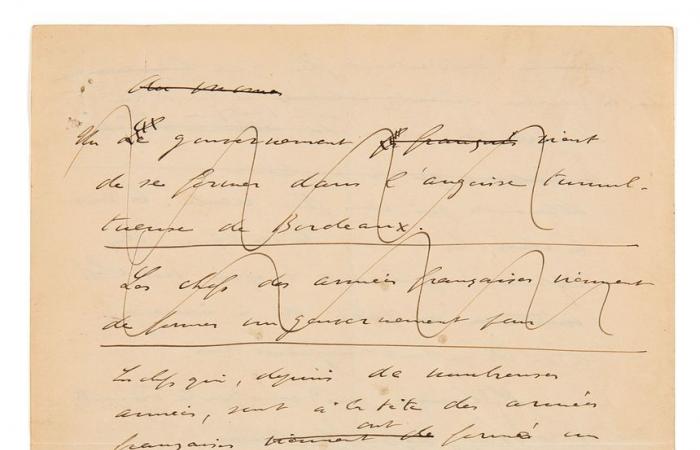 Au mome
Un Le gouvernement français vient
de se former dans l'angoisse tumul-
tueuse de Bordeaux.
Les chefs des armées françaises viennent
de former un gouvernement pour
Les chefs qui, depuis de nombreuses
années, sont à la tête des armées
ont
françaises viennent de formé un